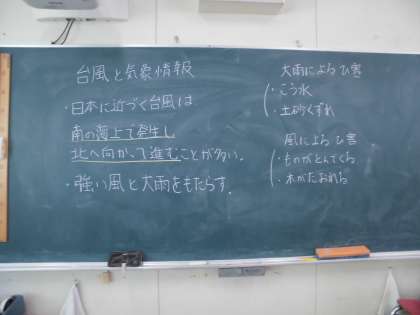 台風と気象情報
・日本に近づく台風は
南の海上で発生し
北へ向かって進むことが多い。
・強い風と大雨をもたらす。
大雨によるひ害
・こう水
・土砂くずれ
風によるひ害
・ものがとんでくる
・木がたおれる